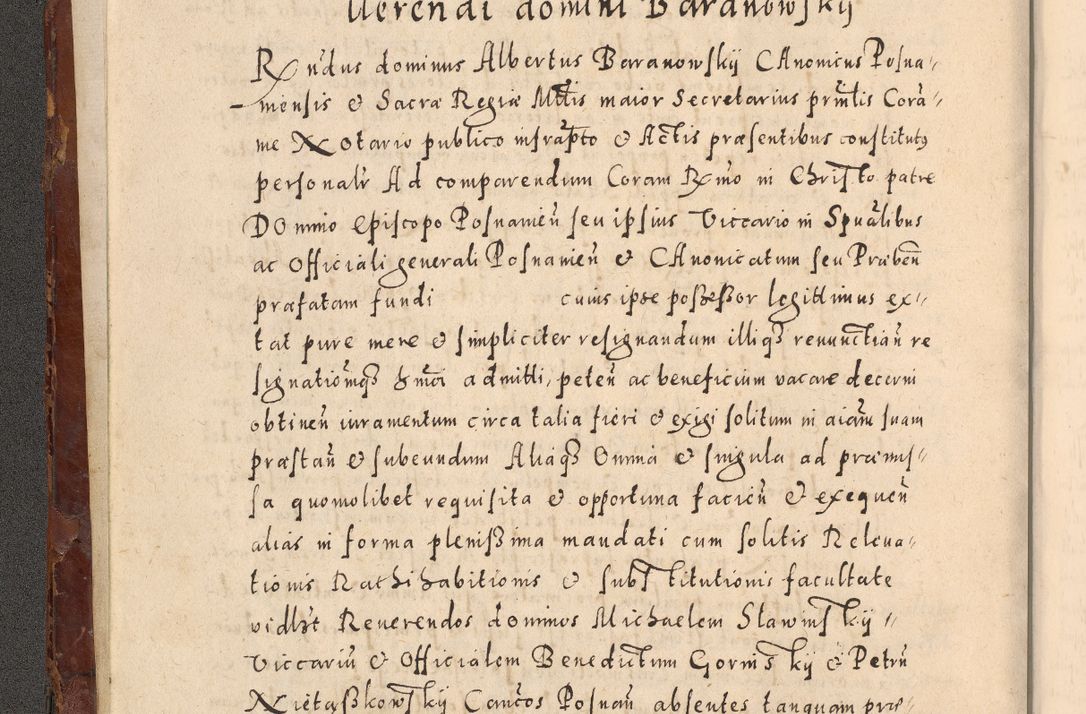 uerendi domini Baranowskÿ
Rndus dominus Albertus Baranowskÿ CAnonicus Posna-
niensis & Sacræ Regiæ Mttis maior Secretarius prntis Corā-
me Notario publico infrapto & Actis præsentibus constitutus
personalr Ad comparendum Coram Rmo in Christo patre
DOmino Episcopo Posnanien seu ipsius Viccario in Spualibus
ac Officiali generali Posnanien & CAnonicatum seu Præben
præfatam fundi cuius ipse possessor legittimus ex-
tat pure mere & simpliciter resignandum illiqz renunctian re
signationqz hmoi admitti, peten ac beneficium vacare decerni
obtinen iuramentum circa talia fieri & exigi solitum in aiam suam
præstan & subeundum Aliaqz Omnia & singula ad præmis-
sa quomolibet requisita & opportuna facien & exequen
alias in forma plenissima mandati cum solitis Releua-
tionis Rathihabitionis & substitutionis facultate
vidlzt Reuerendos dominos Michaelem Slawinskÿ
Viccariū & Officialem Benedictum Gorniskÿ & Petrū
Nietaszkowskÿ Cancos Posnan absentes tanquam præ-